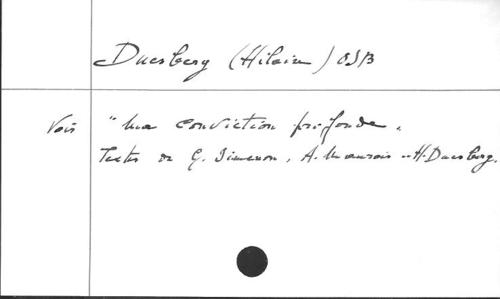 Duesberg (Hilaire) OSB
Voir " Ma conviction profonde.
Textes de G. Simenon, A. Maurois .. H. Duesberg.